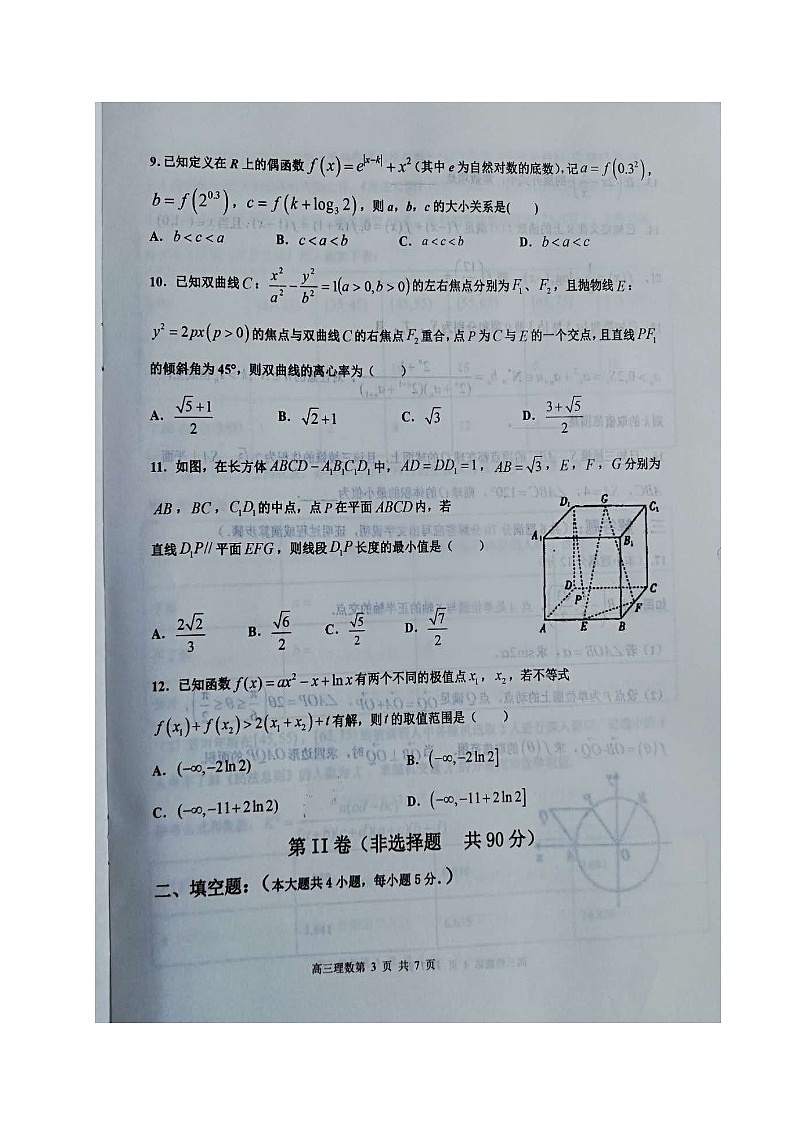 9.已知定义在 R 上的偶函数 f(x)=e^{|x-k|}+x²(其中 e 为自然对数的底数),记 a=f(0.3²),
b=f(2^{0.3}),c=f(k+log₃2),则 a,b,c 的大小关系是( )
A. b<c<a B. c<a<b C. a<c<b D. b<a<c
10. 已知双曲线 C:x²/a²-y²/b²=1(a>0,b>0)的左右焦点分别为F₁、F₂,且抛物线 E:
y²=2px(p>0)的焦点与双曲线 C 的右焦点F₂重合,点 P 为 C 与 E 的一个交点,且直线 PF₁
的倾斜角为 45°,则双曲线的离心率为( )
A. (√5+1)/2 B. √2+1 C. √3 D. (3+√5)/2
11. 如图,在长方体 ABCD-A₁B₁C₁D₁中,AD=DD₁=1,AB=√3,E,F,G分别为
AB,BC,C₁D₁的中点,点 P 在平面 ABCD 内,若
直线 D₁P// 平面 EFG,则线段 D₁P 长度的最小值是( )
A. 2√2/3 B. √6/2 C. √5/2 D. √7/2
D₁ G C₁
A₁ B₁
D C
P F
A E B
12. 已知函数 f(x)=ax²-x+lnx 有两个不同的极值点 x₁,x₂,若不等式
f(x₁)+f(x₂)>2(x₁+x₂)+t有解,则 t 的取值范围是( )
A. (-∞,-2ln2) B. (-∞,-2ln2]
C. (-∞,-11+2ln2) D. (-∞,-11+2ln2]
第 II 卷(非选择题 共 90 分)
二、填空题:(本大题共 4 小题,每小题 5 分.)
高三理数第 3 页 共 7 页